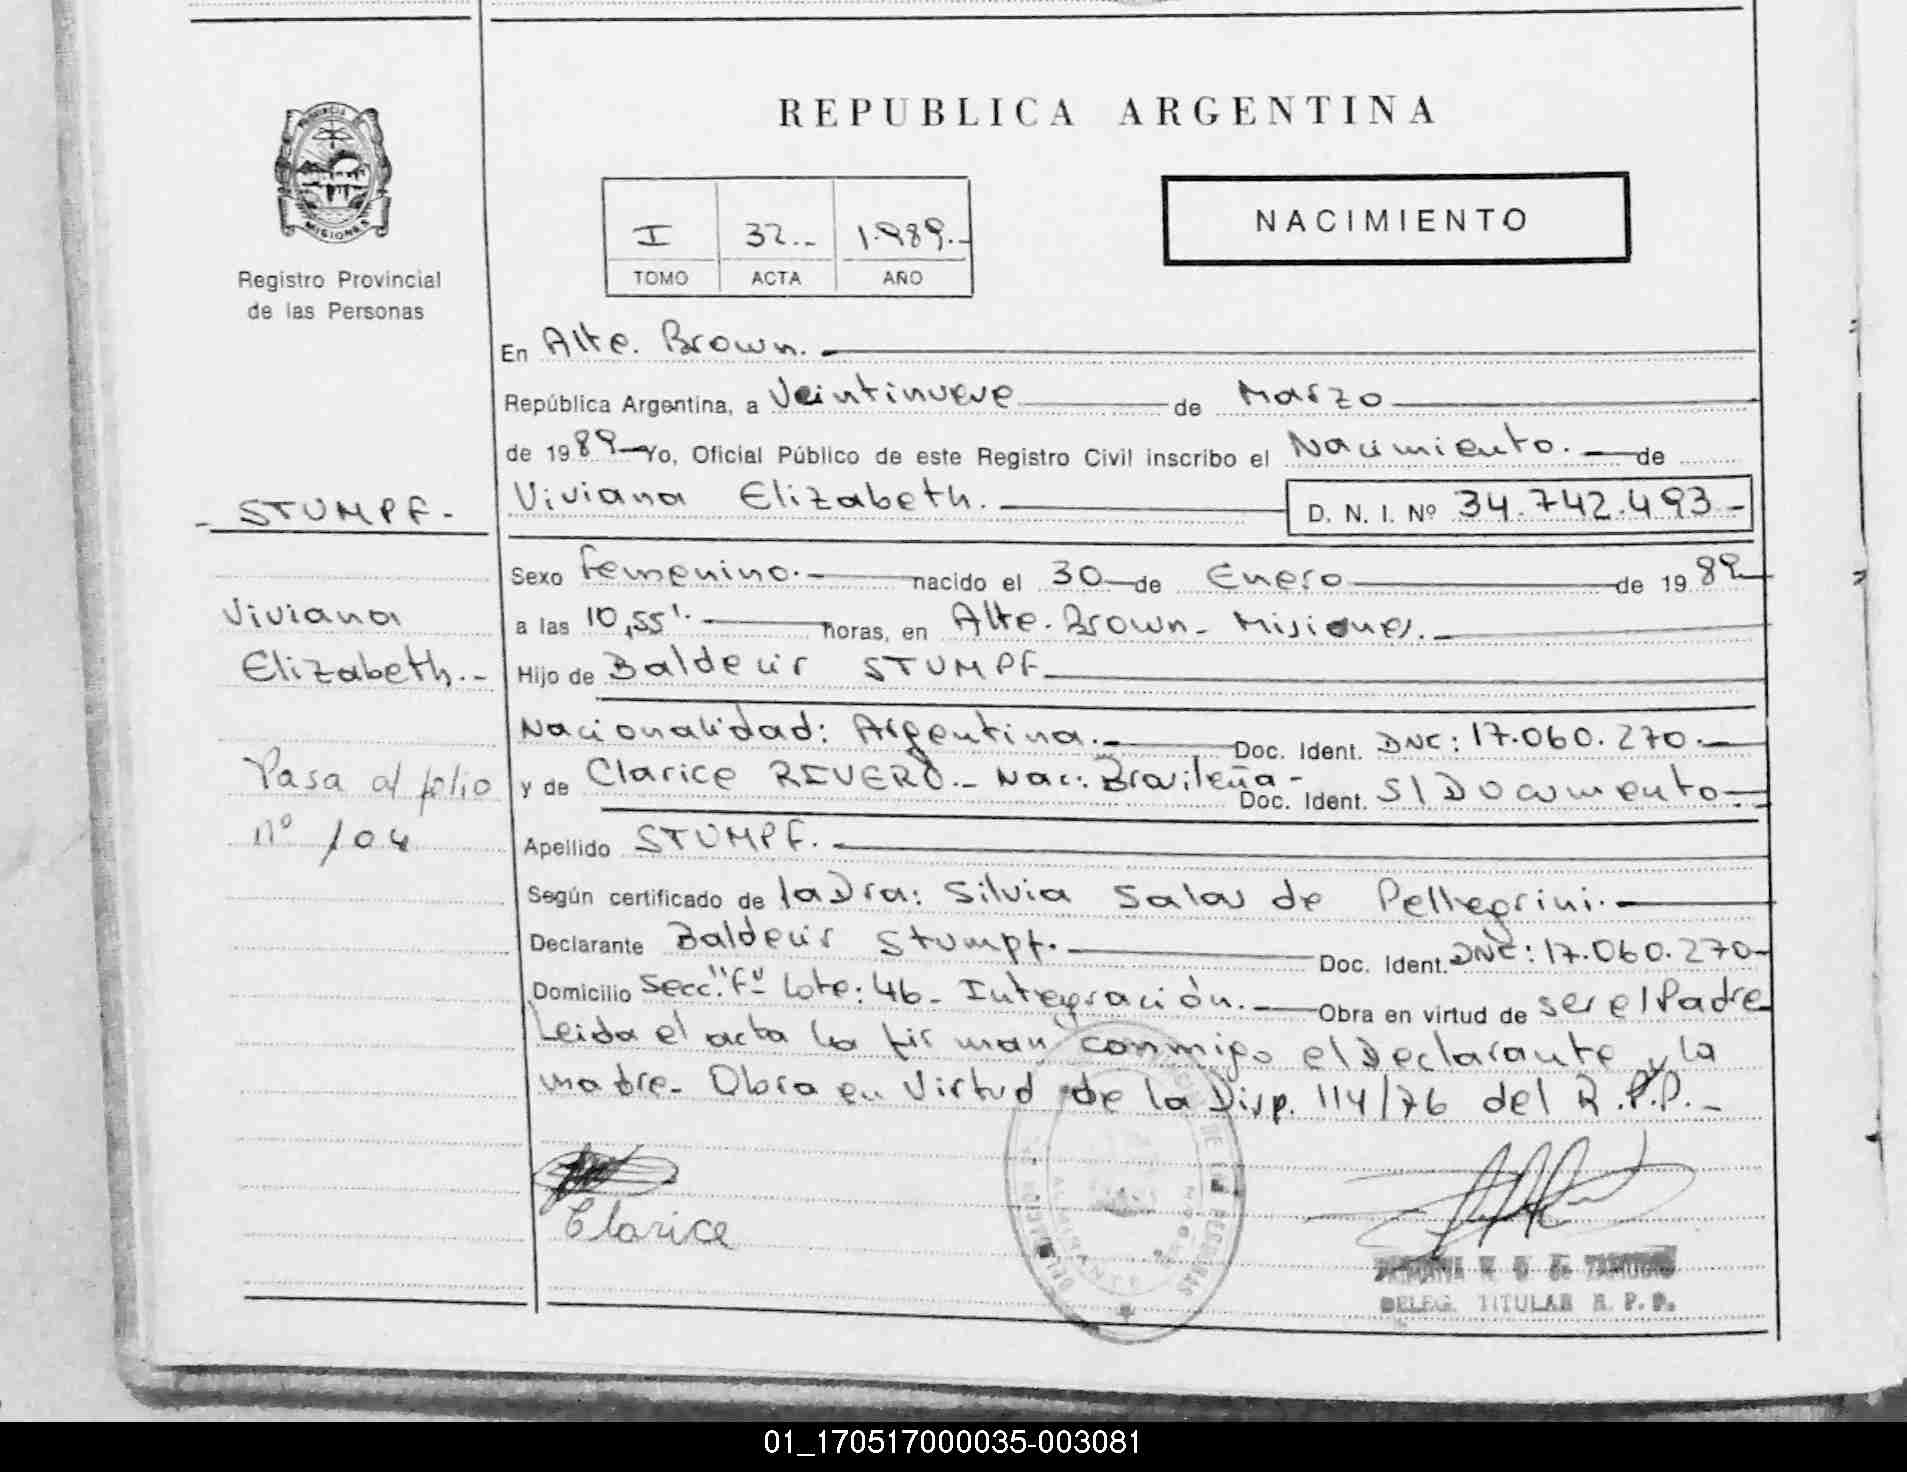 REPUBLICA ARGENTINA
PROVINCIA DE
MISIONES
Registro Provincial
de las Personas
I 32.- 1.989.-
TOMO ACTA AÑO
NACIMIENTO
En Alte. Brown.
República Argentina, a Veintinueve de Marzo
de 1989 Yo, Oficial Público de este Registro Civil inscribo el Nacimiento. de
- STUMPF -
Viviana Elizabeth. D. N. I. Nº 34.742.493-
Sexo femenino. nacido el 30 de Enero de 1989
Viviana
a las 10,55'. horas, en Alte. Brown - Misiones.
Elizabeth.-
Hijo de Baldeur STUMPF
Nacionalidad: Argentina. Doc. Ident. DNI: 17.060.270.
Pasa al folio
y de Clarice RIVERO.- Nac: Brasileña - Doc. Ident. S/Documento
nº 104
Apellido STUMPF.
Según certificado de la Dra: Silvia Salas de Pellegrini.
Declarante Baldeur Stumpf. Doc. Ident. DNI: 17.060.270
Domicilio Secc. "F" Lote: 46 - Integración. Obra en virtud de ser el Padre
Leida el acta la firman conmigo el Declarante y la
madre - Obra en Virtud de la Disp. 114/76 del R.P.P.-
Clarice
DE LAS PERSONAS
ALMIRANTE BROWN
DELEG. TITULAR R. P. P.
01_170517000035-003081